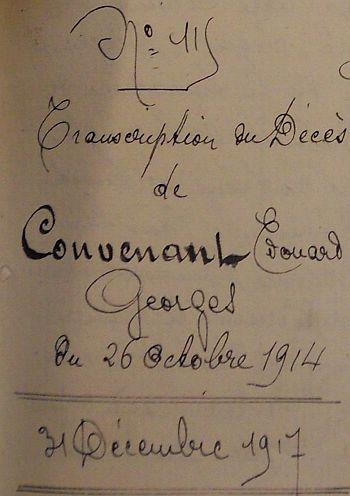 N° 115
Transcription du Décès
de
Convenant Edouard
Georges
Du 26 Octobre 1914
31 Décembre 1917